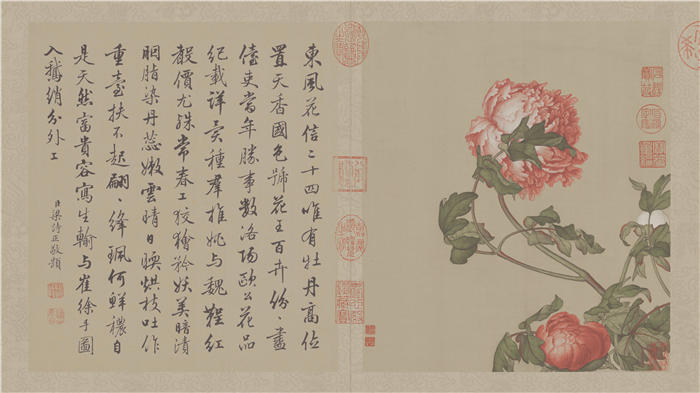 東風花信二十四唯有牡丹髙位
置天香國色號花王百卉紛〻盡
儓吏當年勝事數洛陽歐公花品
紀載詳種羣推姚與魏鞓紅
聲價尤殊常春工狡獪矜妖美暗漬
胭脂染丹蕊嫩雲晴日暎烘枝吐作
重臺扶不起翩〻絳珮何鮮穠自
是天然富貴容寫生輸與崔徐手圖
入鵝綃分外工
臣梁詩正敬題